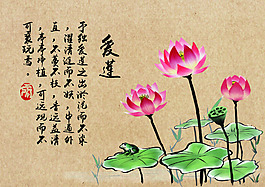 爱莲
予独爱莲之出淤泥而不染
，濯清涟而不妖，中通外
直，不蔓不枝，香远益清
，亭亭净植，可远观而不
可亵玩焉。